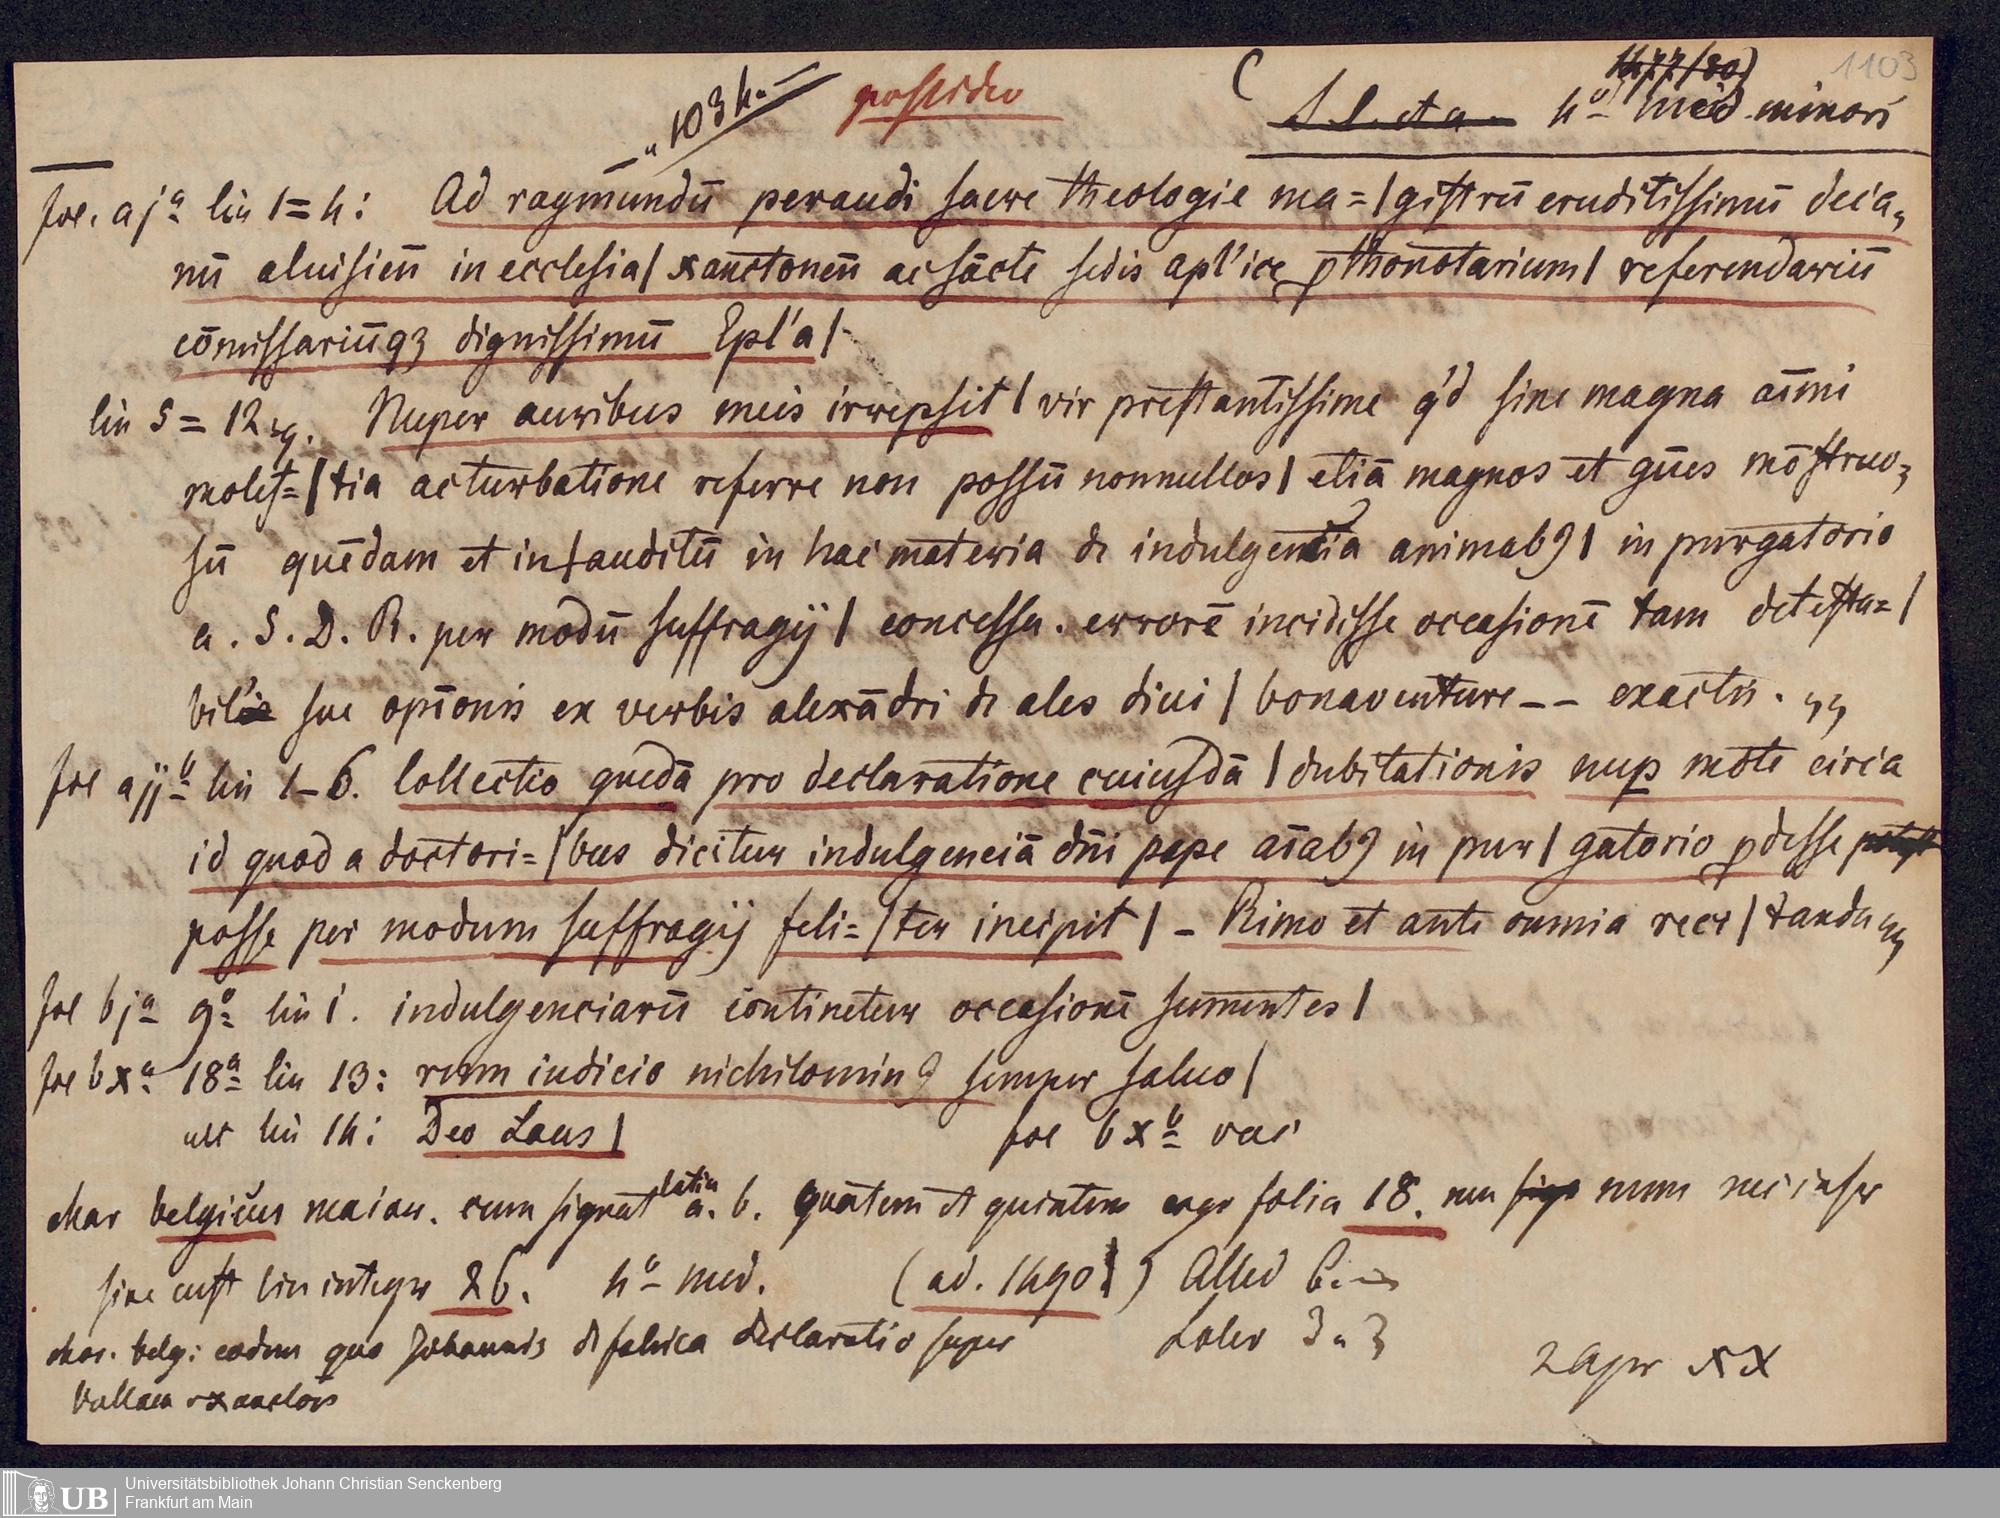 1477/80) 1103
103 h. possideo S. l. et a. 4º med minori
foe. aj a lin 1=4: Ad raymundū peraudi sacre theologie ma=/gistrū eruditissimū deca„
nū aluisien̄ in ecclesia/ xanctonen̄ ac sācte sedis apl'ice ꝓthonotarium/ referendariū
cōmissariūqꝫ dignissimū Epl'a/
lin 5 = 12 sq. Nuper auribus meis irrepsit/ vir prestantissime q'd sine magna aīmi
molest=/tia ac turbatione referre non possū nonnullos/ etiā magnos et gūes mōstruo„
sū quēdam et in/auditū in hac materia de indulgencia animabꝰ/ in purgatorio
a. S. D. R. per modū suffragij/ concessa. errorē incidisse occasionē tam detesta=/
bil' sue opīonis ex verbis alexādri de ales diui/ bonaventure -- exactis. „„
foe ajj b lin 1-6. Collectio quedā pro declaratione cuiusdā/ dubitationis nuꝑ mote circa
id quod a doctori=/bus dicitur indulgenciā dn̄i pape aīabꝰ in pur/gatorio ꝓdesse
posse per modum suffragij feli=/ter incipit/ - Rimo et ante omnia reci/tandu „„
foe bj a 9 a lin 1. indulgenciarū continetur occasionē sumentes/
foe bx a 18 a lin 13: rum iudicio nichilominꝰ semper saluo/
ult lin 14: Deo Laus/ foe bx b vac
char belgicus maian. cum signat latin a. b. quatern et quintern ergo folia 18. non num nec inscr
sine cust lin integr 26. 4º med. (ad. 1490) Alled 6.
char. belg: eodem quo Johannis de fabrica declaratio super Loler 3 „ 3
bullam xanctois 2 Apr XX
Universitätsbibliothek Johann Christian Senckenberg
UB Frankfurt am Main